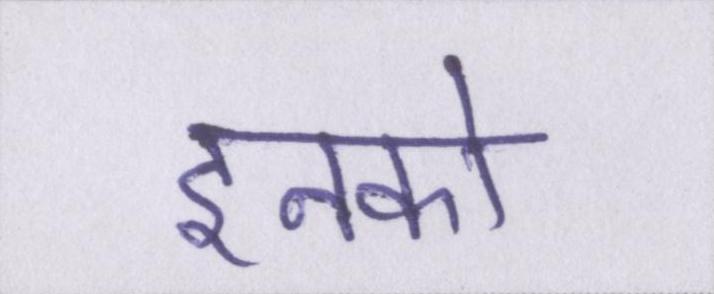 इनको